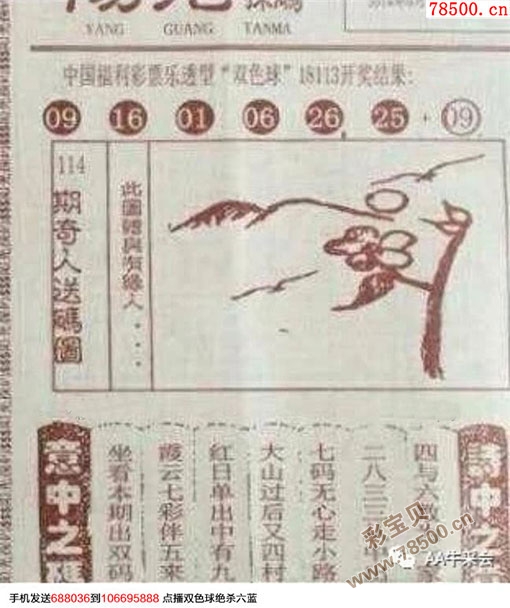 78500.cn
YANG GUANG TANMA
中国福利彩票乐透型“双色球”18113开奖结果:
09 16 01 06 26 25 + 09
114
期奇人送碼圖
此圖贈與有緣人....
四与六
二八三三
七码无心走小路
大山过后又四村
红日单出中有九
霞云七彩伴五来
坐看本期出双码
意中之
彩宝贝
www.78500.cn
AA牛彩云
手机发送688036到106695888 点播双色球绝杀六蓝